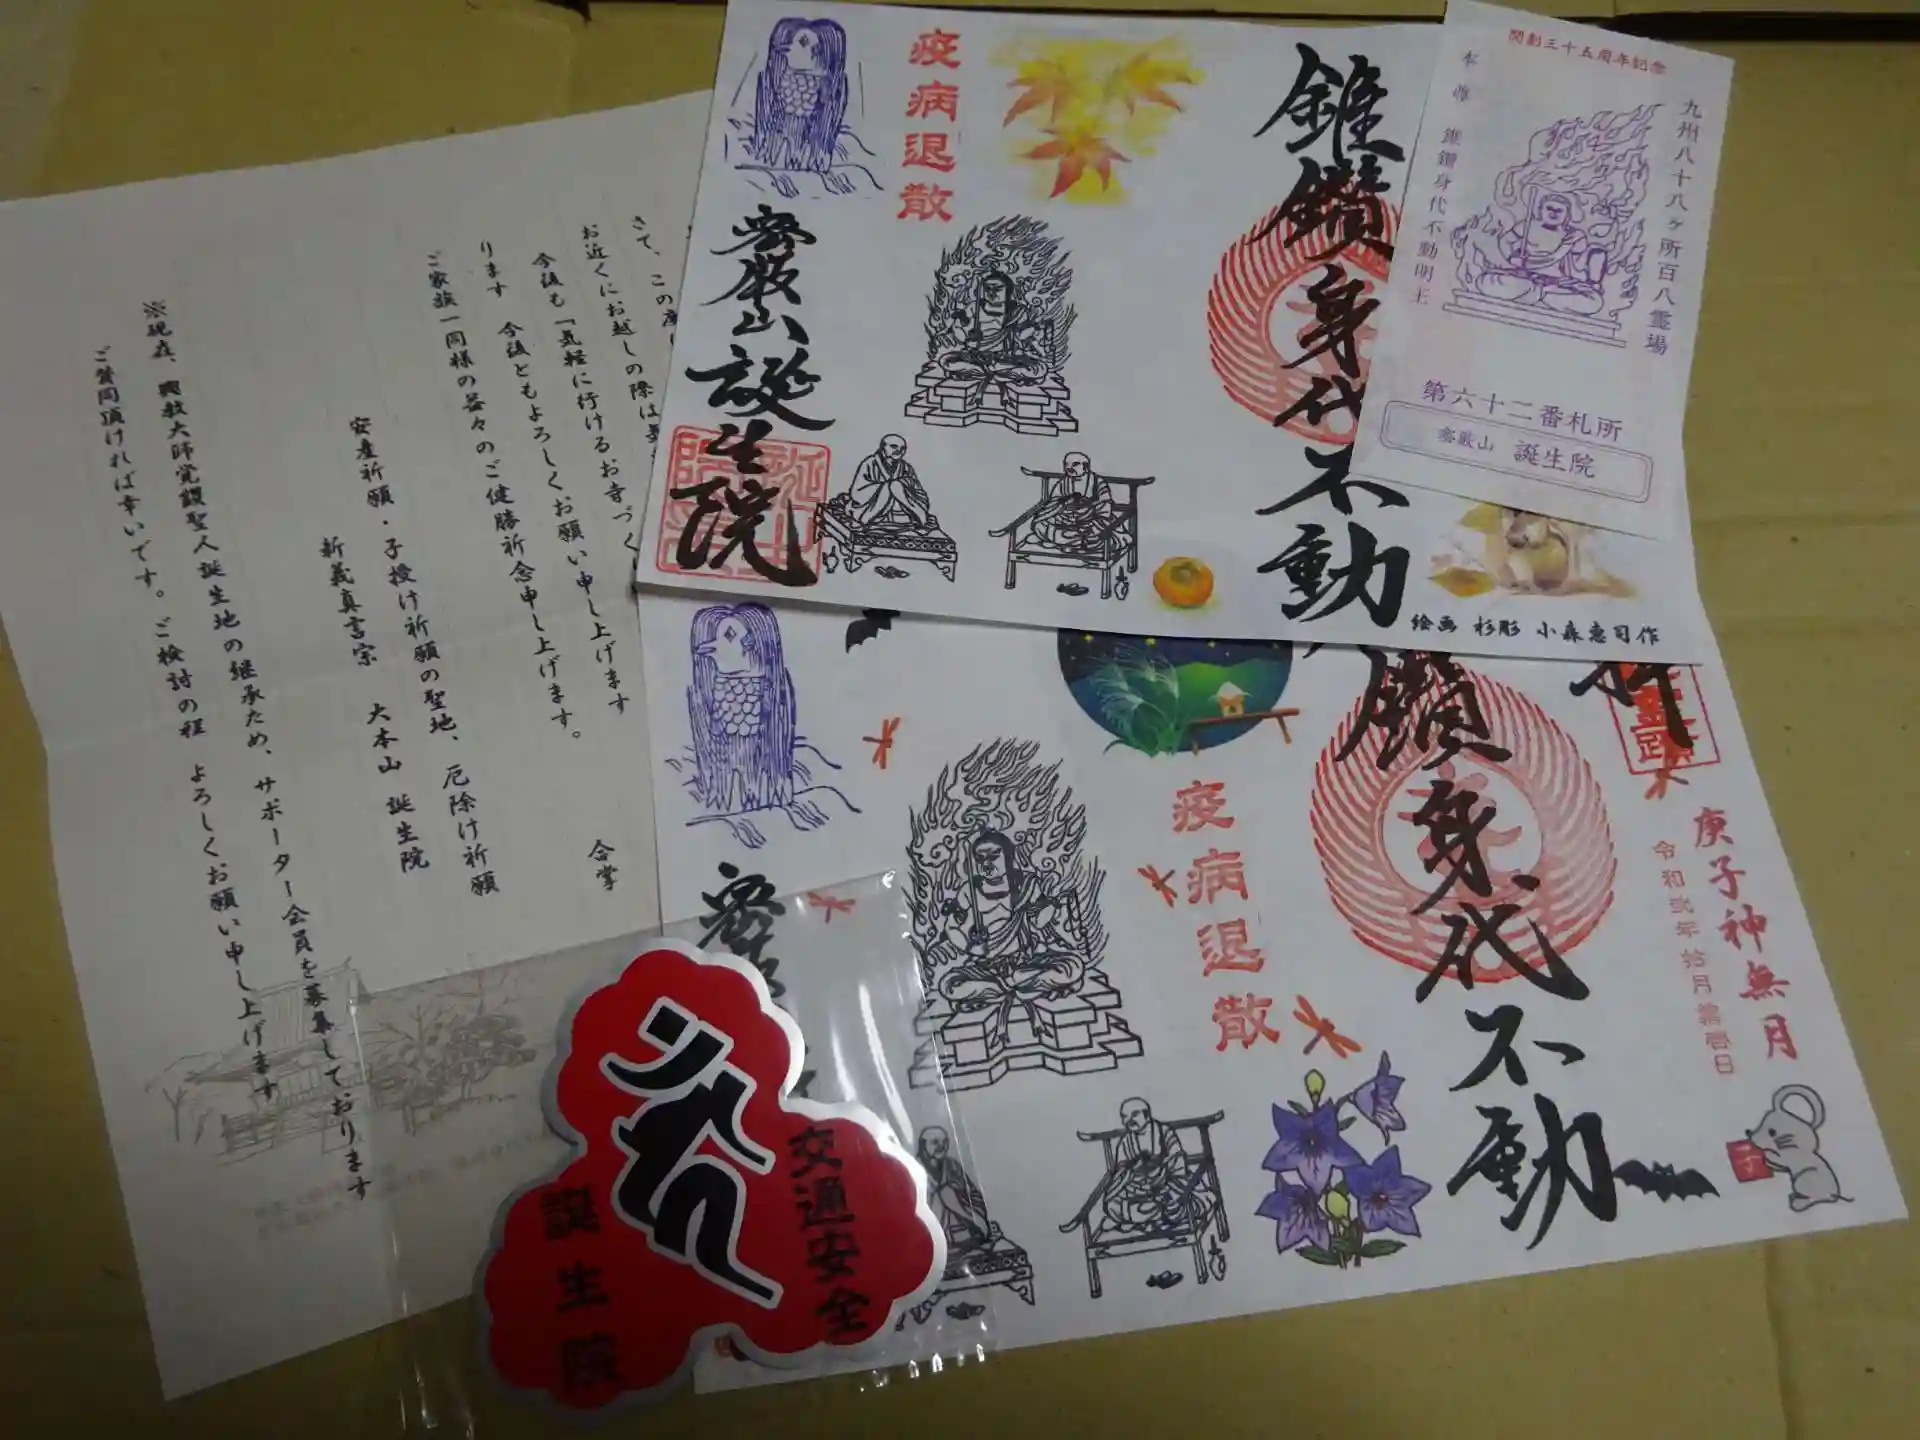 疫病退散
錐鑽身代不動
密厳山誕生院
絵画 杉彫 小森恵司作
開創三十五周年記念
九州八十八ヶ所百八霊場
本尊 錐鑽身代不動明王
第六十二番札所
密厳山 誕生院
庚子神無月
令和弐年拾月
子
疫病退散
鑽身代不動
交通安全
誕生院
さて、この度
お近くにお越しの際は
今後も「気軽に行けるお寺づく
ります 今後ともよろしくお願い申し上げます
ご家族一同様の益々のご健勝祈念申し上げます。
合掌
安産祈願・子授け祈願の聖地、厄除け祈願
新義真言宗 大本山 誕生院
※現在、興教大師覚鑁聖人誕生地の継承ため、サポーター会員を募集しております
ご賛同頂ければ幸いです。ご検討の程 よろしくお願い申し上げます